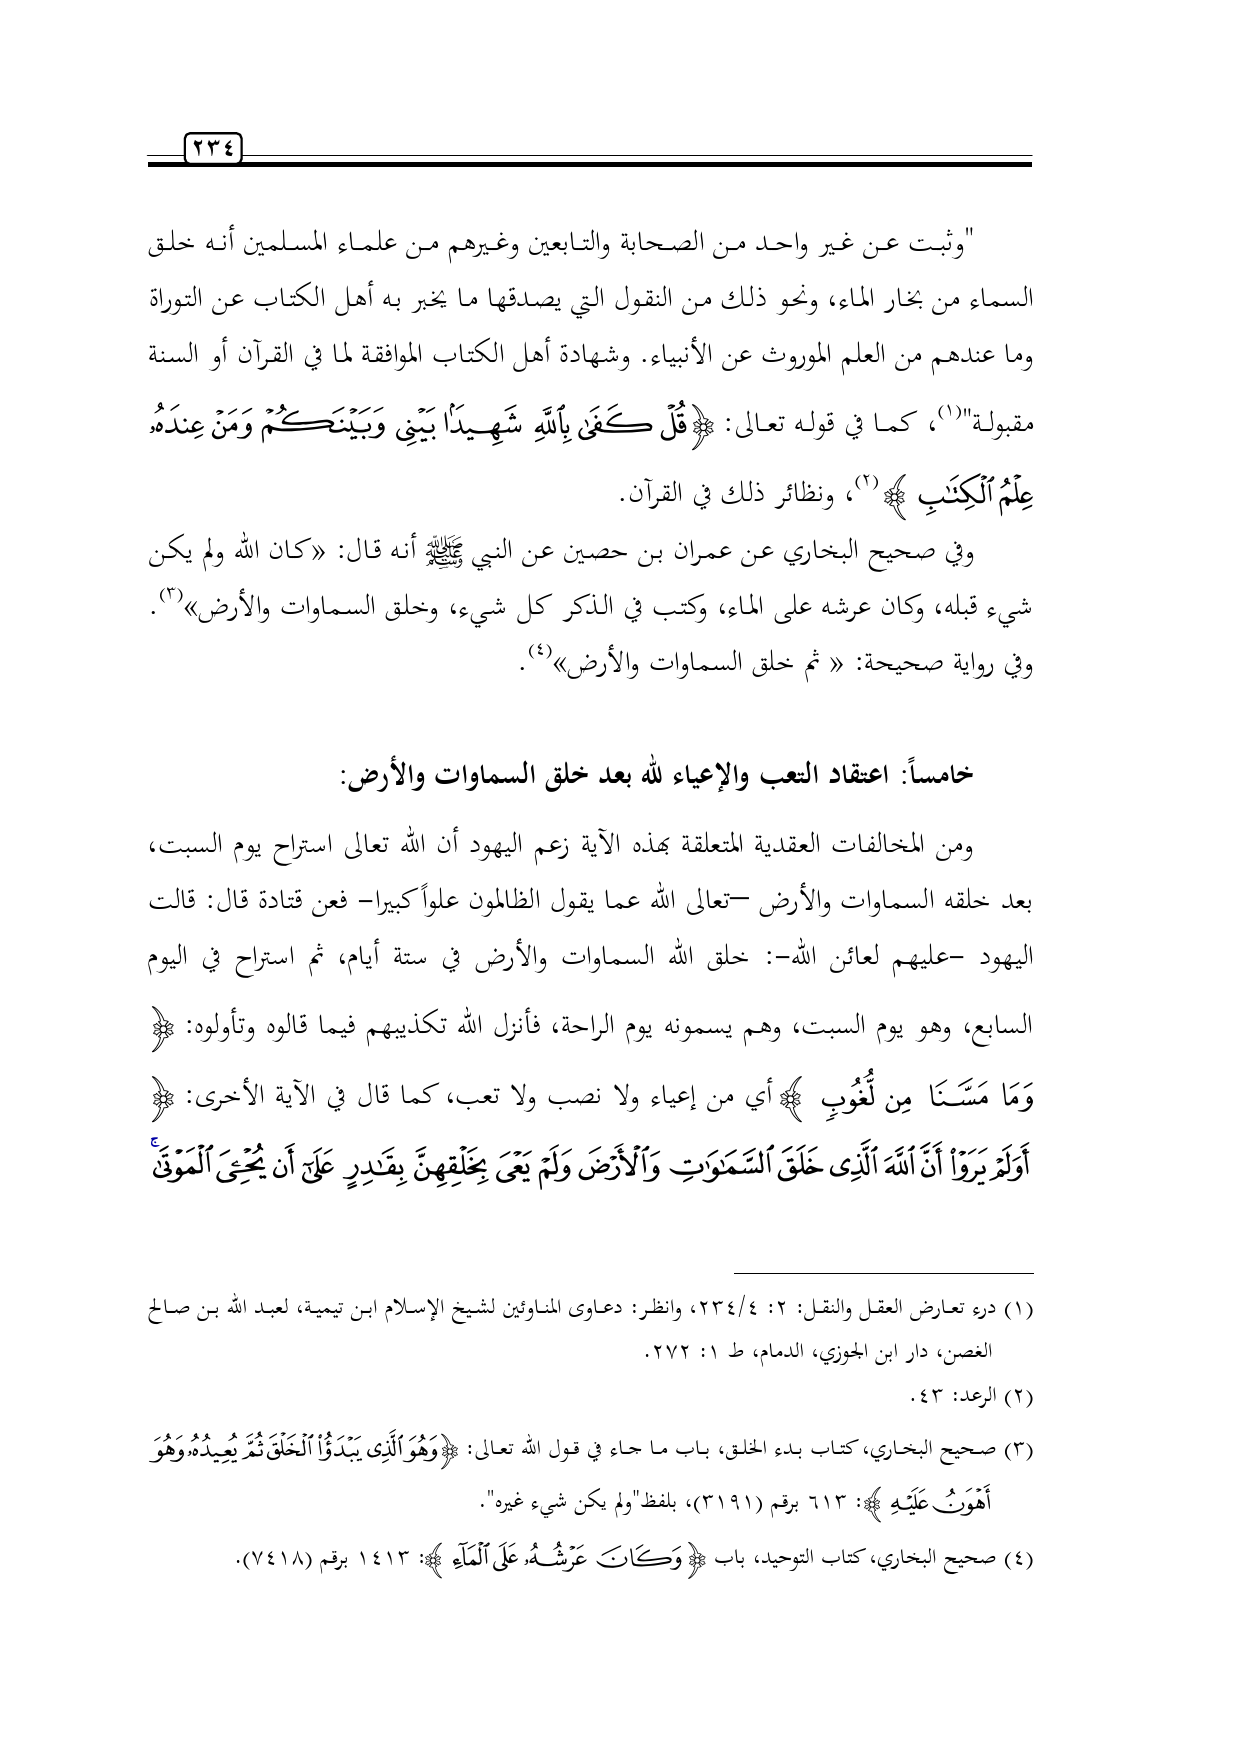 ٢٣٤
"وثبت عن غير واحد من الصحابة والتابعين وغيرهم من علماء المسلمين أنه خلق
السماء من بخار الماء، ونحو ذلك من النقول التي يصدقها ما يخبر به أهل الكتاب عن التوراة
وما عندهم من العلم الموروث عن الأنبياء. وشهادة أهل الكتاب الموافقة لما في القرآن أو السنة
مقبولة"(١)، كما في قوله تعالى: ﴿قُلْ كَفَىٰ بِٱللَّهِ شَهِيدًۢا بَيْنِى وَبَيْنَكُمْ وَمَنْ عِندَهُۥ
عِلْمُ ٱلْكِتَٰبِ ﴾(٢)، ونظائر ذلك في القرآن.
وفي صحيح البخاري عن عمران بن حصين عن النبي ﷺ أنه قال: «كان الله ولم يكن
شيء قبله، وكان عرشه على الماء، وكتب في الذكر كل شيء، وخلق السماوات والأرض»(٣).
وفي رواية صحيحة: « ثم خلق السماوات والأرض»(٤).
خامساً: اعتقاد التعب والإعياء لله بعد خلق السماوات والأرض:
ومن المخالفات العقدية المتعلقة بهذه الآية زعم اليهود أن الله تعالى استراح يوم السبت،
بعد خلقه السماوات والأرض –تعالى الله عما يقول الظالمون علواً كبيرا– فعن قتادة قال: قالت
اليهود –عليهم لعائن الله–: خلق الله السماوات والأرض في ستة أيام، ثم استراح في اليوم
السابع، وهو يوم السبت، وهم يسمونه يوم الراحة، فأنزل الله تكذيبهم فيما قالوه وتأولوه: ﴿
وَمَا مَسَّنَا مِن لُّغُوبٍ ﴾ أي من إعياء ولا نصب ولا تعب، كما قال في الآية الأخرى: ﴿
أَوَلَمْ يَرَوْا۟ أَنَّ ٱللَّهَ ٱلَّذِى خَلَقَ ٱلسَّمَٰوَٰتِ وَٱلْأَرْضَ وَلَمْ يَعْىَ بِخَلْقِهِنَّ بِقَٰدِرٍ عَلَىٰٓ أَن يُحْۦِىَ ٱلْمَوْتَىٰ ۚ
(١) درء تعارض العقل والنقل: ٢: ٢٣٤/٤، وانظر: دعاوى المناوئين لشيخ الإسلام ابن تيمية، لعبد الله بن صالح
الغصن، دار ابن الجوزي، الدمام، ط ١: ٢٧٢.
(٢) الرعد: ٤٣.
(٣) صحيح البخاري، كتاب بدء الخلق، باب ما جاء في قول الله تعالى: ﴿وَهُوَ ٱلَّذِى يَبْدَؤُا۟ ٱلْخَلْقَ ثُمَّ يُعِيدُهُۥ وَهُوَ
أَهْوَنُ عَلَيْهِ ﴾: ٦١٣ برقم (٣١٩١)، بلفظ"ولم يكن شيء غيره".
(٤) صحيح البخاري، كتاب التوحيد، باب ﴿وَكَانَ عَرْشُهُۥ عَلَى ٱلْمَآءِ ﴾: ١٤١٣ برقم (٧٤١٨).